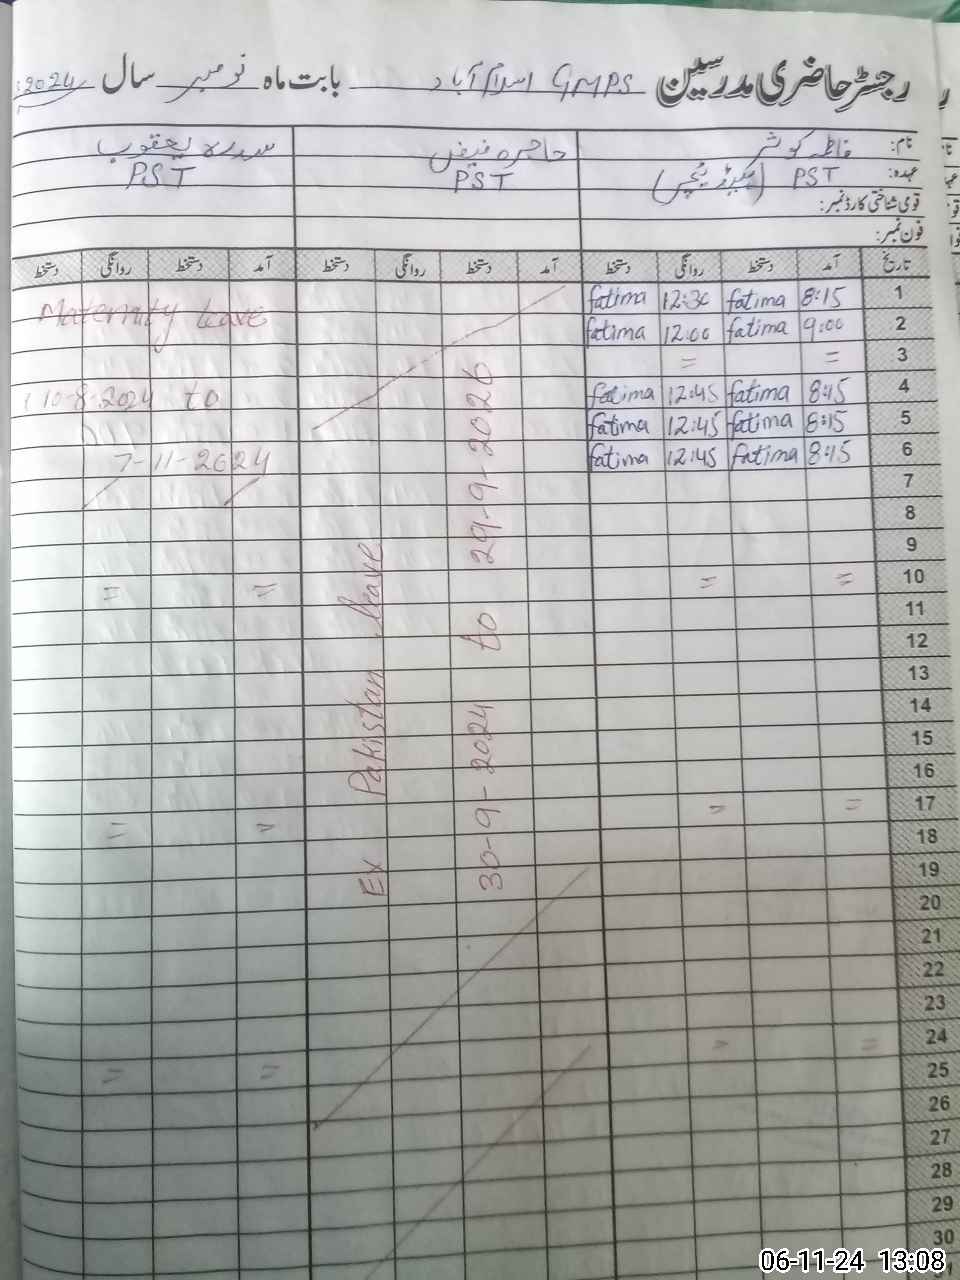 رجسٹر حاضری مدرسین GMPS اسلام آباد بابت ماہ نومبر سال 2024
نام: فاطمہ کوثر حاجرہ فیض سدرہ یعقوب
عہدہ: PST (ہیڈ ٹیچر) PST PST
قومی شناختی کارڈ نمبر:
فون نمبر:
تاریخ آمد دستخط روانگی دستخط آمد دستخط روانگی دستخط آمد دستخط روانگی دستخط
1 8:15 fatima 12:30 fatima
2 9:00 fatima 12:00 fatima
3 = =
4 8:45 fatima 12:45 fatima
5 8:15 fatima 12:45 fatima
6 8:15 fatima 12:45 fatima
7
8
9
10 = =
11
12
13
14
15
16
17 = =
18
19
20
21
22
23
24 = =
25
26
27
28
29
30
Ex Pakistan leave
30-9-2024 to 29-9-2026
Maternity leave
10-8-2024 to
7-11-2024
= =
= =
= =
06-11-24 13:08